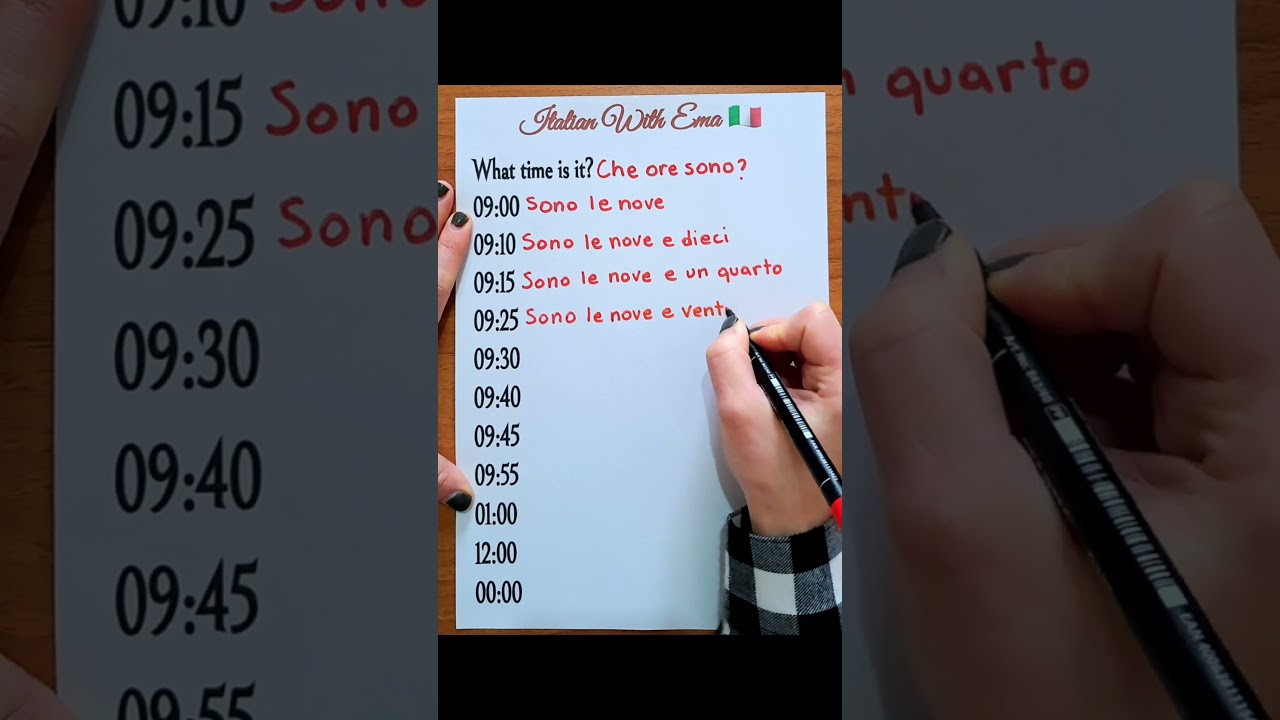 Italian With Ema
What time is it? Che ore sono?
09:00 Sono le nove
09:10 Sono le nove e dieci
09:15 Sono le nove e un quarto
09:25 Sono le nove e vent
09:30
09:40
09:45
09:55
01:00
12:00
00:00